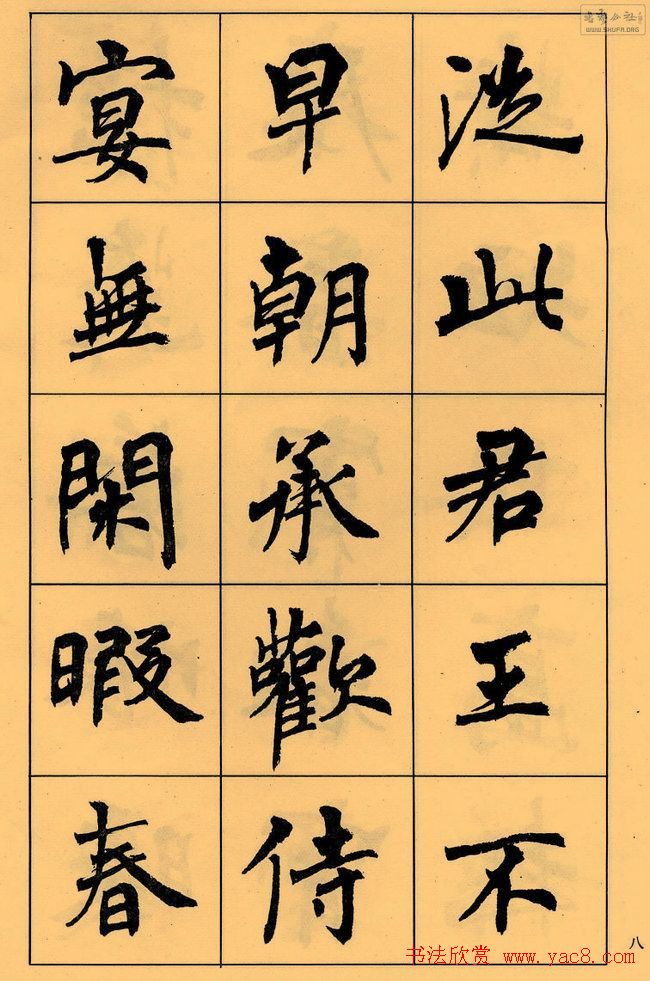 從此君王不
早朝承歡侍
宴無閑暇春
八
书法欣赏 www.yac8.com
WWW.SHUFA.ORG